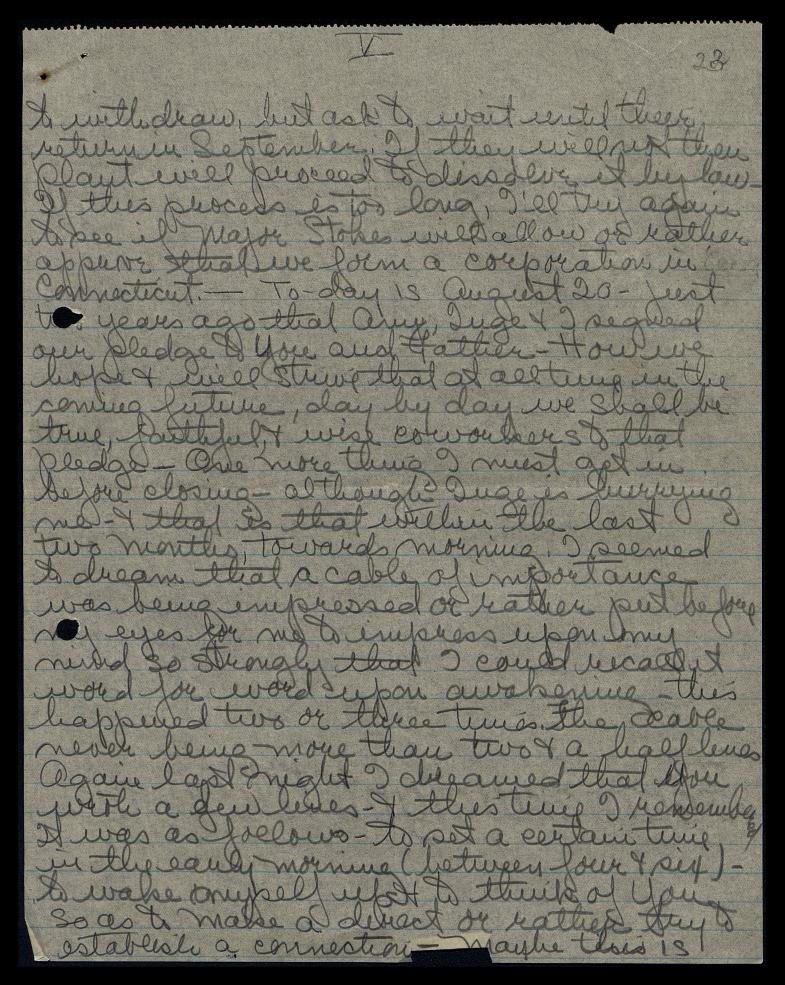 V
23
to withdraw, but ask to wait until their
return in September. If they will not then
Plaut will proceed to dissolve it by law-
If this process is too long, I'll try again
to see if Major Stokes will allow or rather
approve that we form a corporation in
Connecticut. — To-day is August 20 - just
years ago that Amy, Inge & I signed
our pledge to You and Father - How we
hope & will strive that at all time in the
coming future, day by day we shall be
true, faithful, & wise coworkers to that
pledge - One more thing I must get in
before closing - although Inge is hurrying
me - & that is that within the last
two months, towards morning, I seemed
to dream that a cable of importance
was being impressed or rather put before
my eyes for me to impress upon my
mind so strongly that I could recall it
word for word upon awakening - this
happened two or three times, the cable
never being more than two & a half lines
Again last night I dreamed that You
wrote a few lines - & this time I remember
it was as follows - to set a certain time
in the early morning (between four & six) -
to wake myself up & to think of You
so as to make a direct or rather try to
establish a connection - Maybe this is